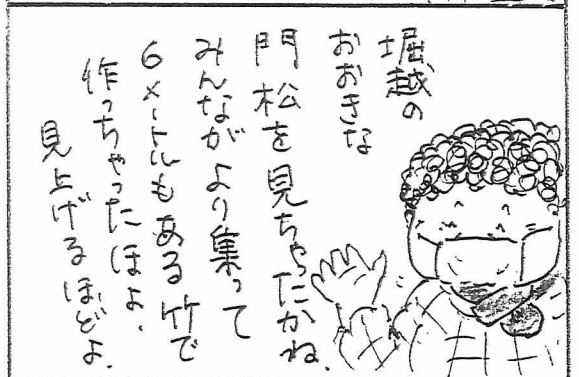 堀越の
おおきな
門松を見ちゃったかね.
みんながより集って
6メートルもある竹で
作っちゃったほよ.
見上げるほどよ.